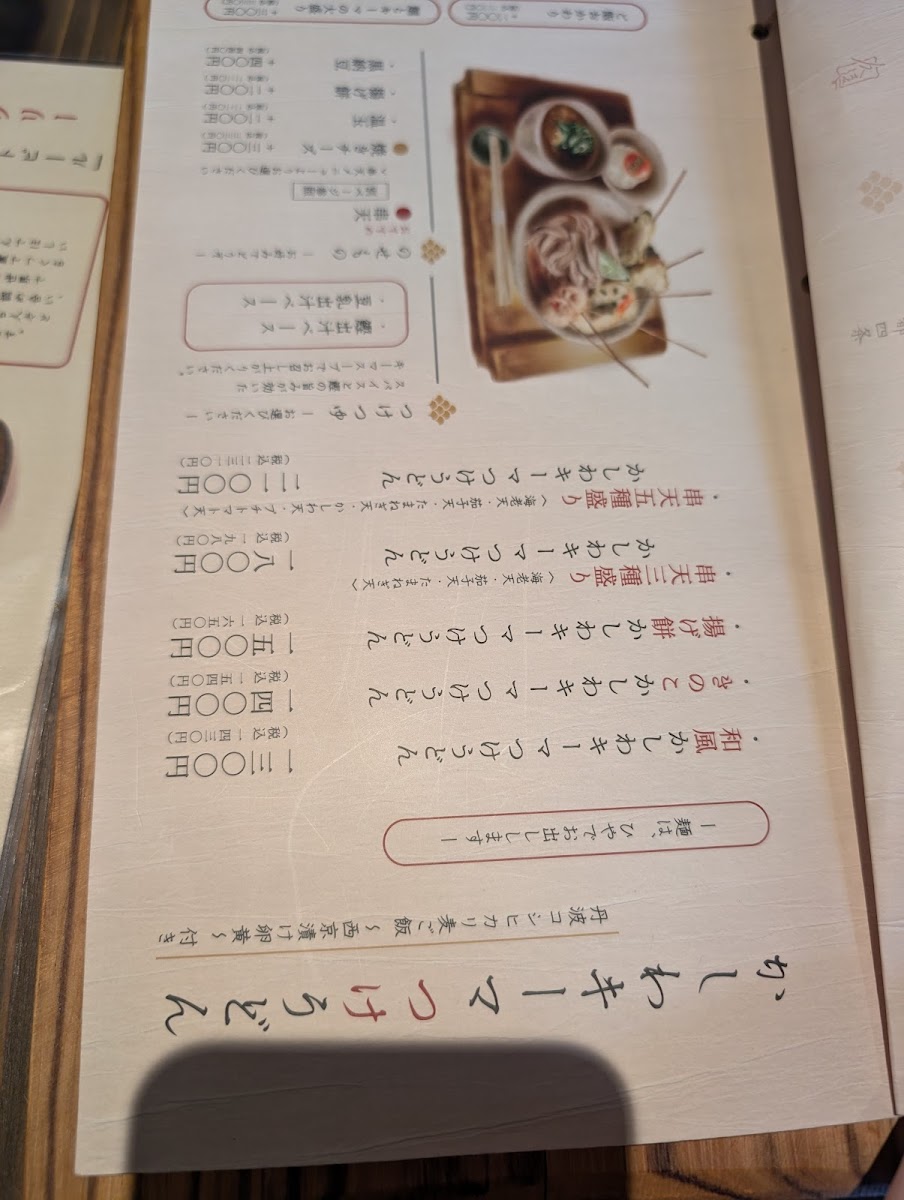 かしわキーマつけうどん
丹波コシヒカリ麦ご飯〜西京漬け卵黄〜付き
ー麺は、ひやでお出しますー
・和風かしわキーマつけうどん
一三〇〇円
(税込 一四三〇円)
・きのことかしわキーマつけうどん
一四〇〇円
(税込 一五四〇円)
・揚げ餅かしわキーマつけうどん
一五〇〇円
(税込 一六五〇円)
・串天三種盛り〈海老天・茄子天・たまねぎ天〉
かしわキーマつけうどん
一八〇〇円
(税込 一九八〇円)
・串天五種盛り〈海老天・茄子天・たまねぎ天・かしわ天・プチトマト天〉
かしわキーマつけうどん
二一〇〇円
(税込 二三一〇円)
つけつゆ ーお選びくださいー
スパイスと鰹の旨みが効いた
キーマスープでお召し上がりください。
・鰹出汁ベース
・豆乳出汁ベース
のせもの ーお好みでどうぞー
おすすめ
串天
別ページ参照
＞串天メニューよりお選びください
焼きチーズ
+三〇〇円
(税込 三三〇円)
・温玉
・揚げ餅
・黒納豆
ご飯おかわり
麺とキーマの大盛り